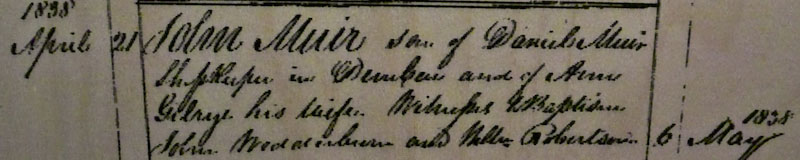 1838
April 21 John Muir son of Daniel Muir
Shopkeeper in Dunbar and of Ann
Gilrye his Wife. Witnesses Baptism
John Wedderburn and Robertson 6 May 1838